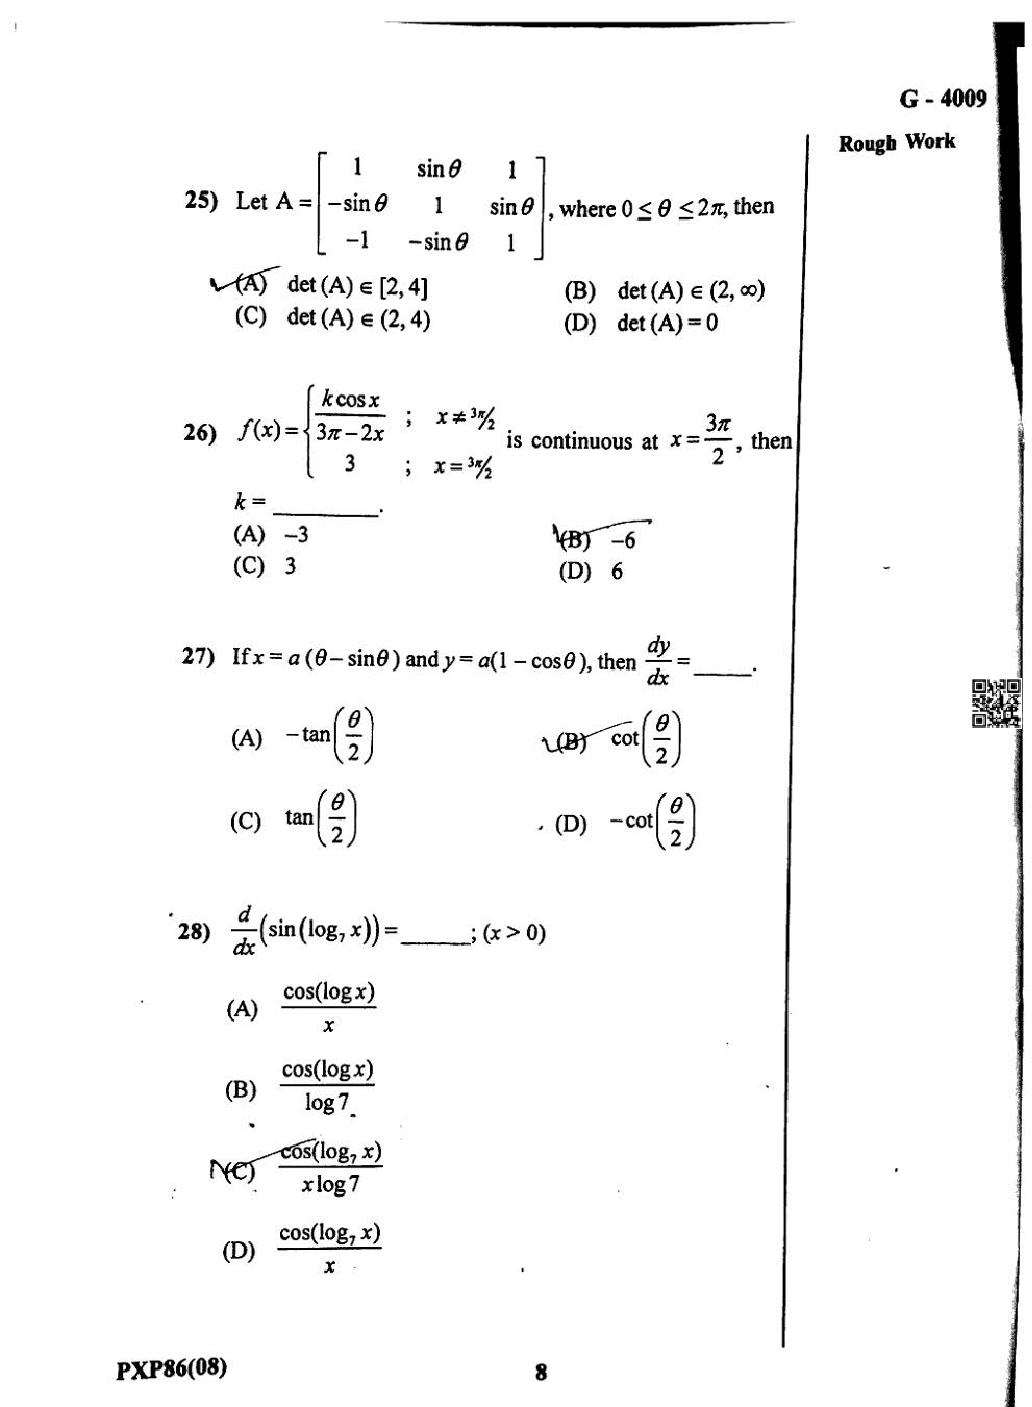 G - 4009
Rough Work
25) Let A = [ 1 sinθ 1
−sinθ 1 sinθ
−1 −sinθ 1 ], where 0 ≤ θ ≤ 2π, then
(A) det (A) ∈ [2, 4] (B) det (A) ∈ (2, ∞)
(C) det (A) ∈ (2, 4) (D) det (A) = 0
26) f(x) = { k cos x / 3π − 2x ; x ≠ 3π/2
3 ; x = 3π/2 is continuous at x = 3π/2, then
k = ________.
(A) −3 (B) −6
(C) 3 (D) 6
27) If x = a (θ − sinθ) and y = a(1 − cosθ), then dy/dx = _____.
(A) −tan(θ/2) (B) cot(θ/2)
(C) tan(θ/2) (D) −cot(θ/2)
28) d/dx (sin(log₇ x)) = ______; (x > 0)
(A) cos(log x) / x
(B) cos(log x) / log 7
(C) cos(log₇ x) / x log 7
(D) cos(log₇ x) / x
PXP86(08) 8